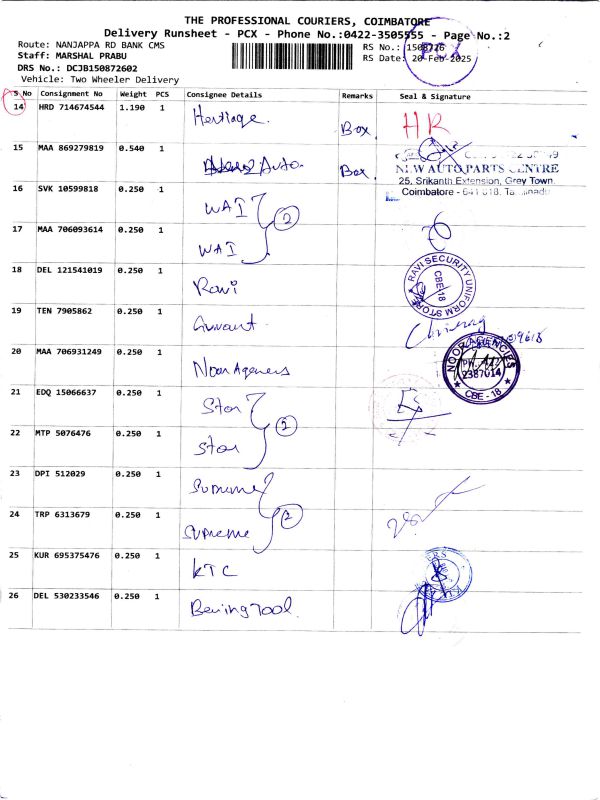 THE PROFESSIONAL COURIERS, COIMBATORE
Delivery Runsheet - PCX - Phone No.:0422-3505555 - Page No.:2
Route: NANJAPPA RD BANK CMS
RS No.: 1508726
Staff: MARSHAL PRABU
RS Date: 20-Feb-2025
PCX
DRS No.: DCJB150872602
Vehicle: Two Wheeler Delivery
S No Consignment No Weight PCS Consignee Details Remarks Seal & Signature
14 HRD 714674544 1.190 1 Heritage. Box. HR
15 MAA 869279819 0.540 1 Auto. Box.
NEW AUTO PARTS CENTRE
25, Srikanth Extension, Grey Town,
Coimbatore - 641 018. Tamilnadu
16 SVK 10599818 0.250 1 WAI 2
17 MAA 706093614 0.250 1 WAI
18 DEL 121541019 0.250 1 Ravi
RAVI SECURITY UNIFORM STORE
CBE-18
19 TEN 7905862 0.250 1
20 MAA 706931249 0.250 1 Noor Agencies
NOOR AGENCIES
2387014
CBE - 18
21 EDQ 15066637 0.250 1 Star 2
22 MTP 5076476 0.250 1 Star
23 DPI 512029 0.250 1 Supreme 2
24 TRP 6313679 0.250 1 Supreme
25 KUR 695375476 0.250 1 KTC
26 DEL 530233546 0.250 1 Bearing Tool.